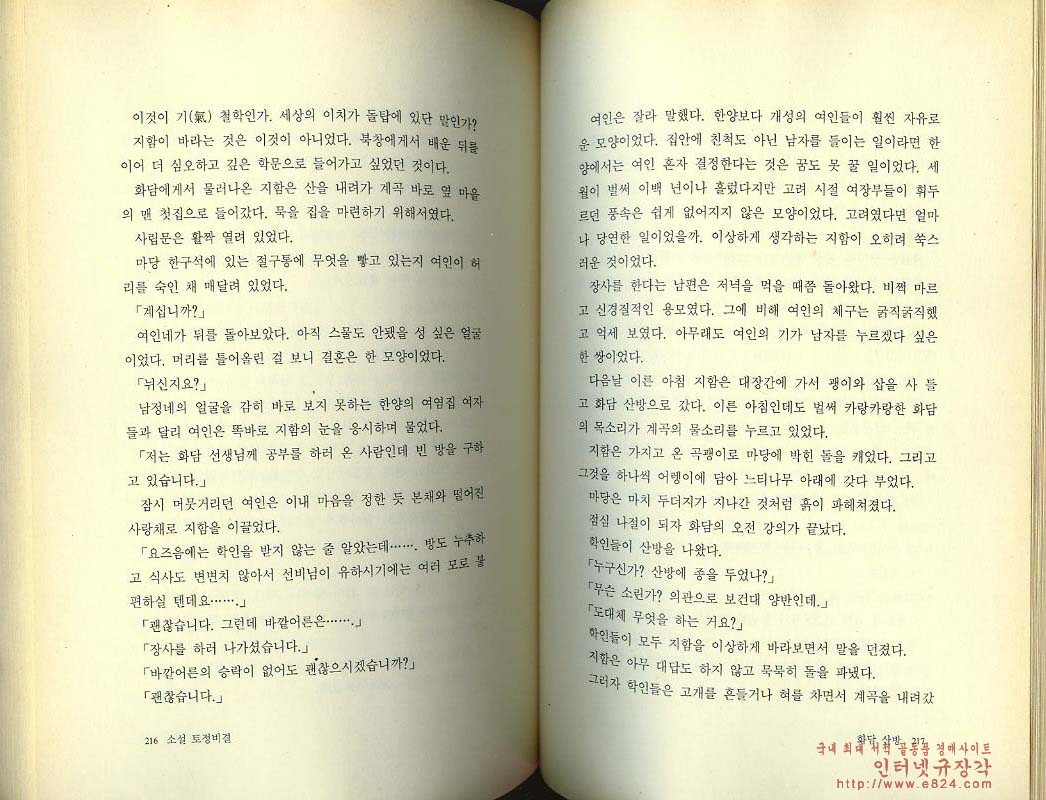 이것이 기(氣) 철학인가. 세상의 이치가 돌탑에 있단 말인가?
지함이 바라는 것은 이것이 아니었다. 북창에게서 배운 뒤를
이어 더 심오하고 깊은 학문으로 들어가고 싶었던 것이다.
화담에게서 물러나온 지함은 산을 내려가 계곡 바로 옆 마을
의 맨 첫집으로 들어갔다. 묵을 집을 마련하기 위해서였다.
사립문은 활짝 열려 있었다.
마당 한구석에 있는 절구통에 무엇을 빻고 있는지 여인이 허
리를 숙인 채 매달려 있었다.
「계십니까?」
여인네가 뒤를 돌아보았다. 아직 스물도 안됐을 성 싶은 얼굴
이었다. 머리를 틀어올린 걸 보니 결혼은 한 모양이었다.
「뉘신지요?」
남정네의 얼굴을 감히 바로 보지 못하는 한양의 여염집 여자
들과 달리 여인은 똑바로 지함의 눈을 응시하며 물었다.
「저는 화담 선생님께 공부를 하러 온 사람인데 빈 방을 구하
고 있습니다.」
잠시 머뭇거리던 여인은 이내 마음을 정한 듯 본채와 떨어진
사랑채로 지함을 이끌었다.
「요즈음에는 학인을 받지 않는 줄 알았는데……. 방도 누추하
고 식사도 변변치 않아서 선비님이 유하시기에는 여러 모로 불
편하실 텐데요…….」
「괜찮습니다. 그런데 바깥어른은…….」
「장사를 하러 나가셨습니다.」
「바깥어른의 승락이 없어도 괜찮으시겠습니까?」
「괜찮습니다.」
216 소설 토정비결
여인은 잘라 말했다. 한양보다 개성의 여인들이 훨씬 자유로
운 모양이었다. 집안에 친척도 아닌 남자를 들이는 일이라면 한
양에서는 여인 혼자 결정한다는 것은 꿈도 못 꿀 일이었다. 세
월이 벌써 이백 년이나 흘렀다지만 고려 시절 여장부들이 휘두
르던 풍속은 쉽게 없어지지 않은 모양이었다. 고려였다면 얼마
나 당연한 일이었을까. 이상하게 생각하는 지함이 오히려 쑥스
러운 것이었다.
장사를 한다는 남편은 저녁을 먹을 때쯤 돌아왔다. 비쩍 마르
고 신경질적인 용모였다. 그에 비해 여인의 체구는 굵직굵직했
고 억세 보였다. 아무래도 여인의 기가 남자를 누르겠다 싶은
한 쌍이었다.
다음날 이른 아침 지함은 대장간에 가서 괭이와 삽을 사 들
고 화담 산방으로 갔다. 이른 아침인데도 벌써 카랑카랑한 화담
의 목소리가 계곡의 물소리를 누르고 있었다.
지함은 가지고 온 곡괭이로 마당에 박힌 돌을 캐었다. 그리고
그것을 하나씩 어렝이에 담아 느티나무 아래에 갖다 부었다.
마당은 마치 두더지가 지나간 것처럼 흙이 파헤쳐졌다.
점심 나절이 되자 화담의 오전 강의가 끝났다.
학인들이 산방을 나왔다.
「누구신가? 산방에 종을 두었나?」
「무슨 소린가? 의관으로 보건대 양반인데.」
「도대체 무엇을 하는 거요?」
학인들이 모두 지함을 이상하게 바라보면서 말을 던졌다.
지함은 아무 대답도 하지 않고 묵묵히 돌을 파냈다.
그러자 학인들은 고개를 흔들거나 혀를 차면서 계곡을 내려갔
화담 산방 217
국내 최대 서적 골동품 경매사이트
인터넷규장각
http://www.e824.com